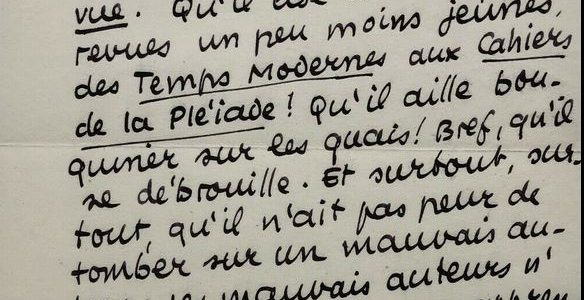 vue. Qu'il
revues un peu moins jeunes,
des Temps Modernes aux Cahiers
de la Pléiade! Qu'il aille bou-
quiner sur les quais! Bref, qu'il
se débrouille. Et surtout, sur-
tout, qu'il n'ait pas peur de
tomber sur un mauvais au-
mauvais auteurs n'